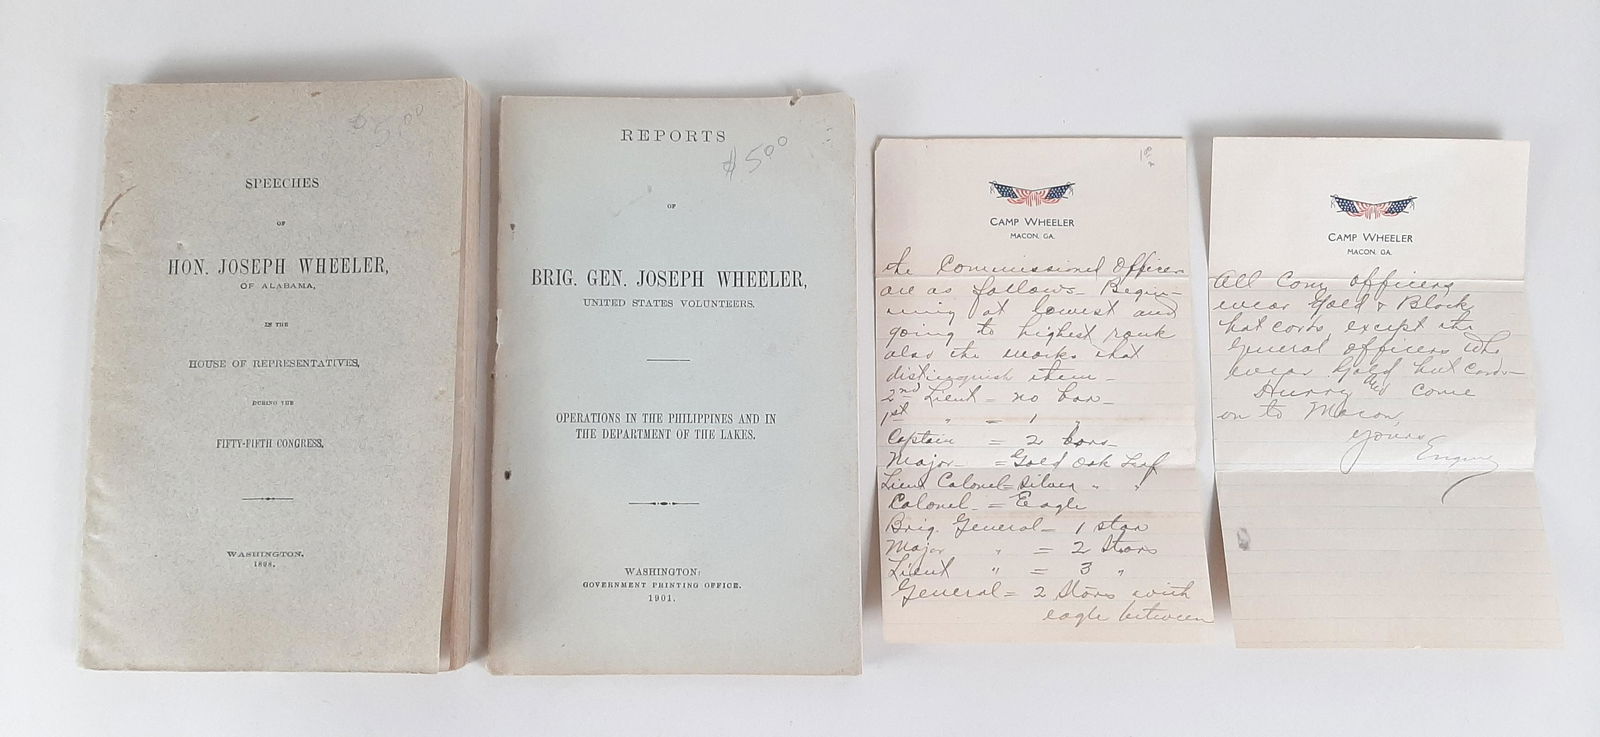 $5.00
SPEECHES
OF
HON. JOSEPH WHEELER,
OF ALABAMA,
IN THE
HOUSE OF REPRESENTATIVES,
DURING THE
FIFTY-FIFTH CONGRESS.
WASHINGTON.
1898.
REPORTS
$5.00
OF
BRIG. GEN. JOSEPH WHEELER,
UNITED STATES VOLUNTEERS.
OPERATIONS IN THE PHILIPPINES AND IN
THE DEPARTMENT OF THE LAKES.
WASHINGTON:
GOVERNMENT PRINTING OFFICE.
1901.
CAMP WHEELER
MACON, GA.
the Commissioned Officers
are as follows - Begin-
ning at lowest and
going to highest rank
also the marks that
distinguish them -
2nd Lieut = no bar -
1st " = 1 "
Captain = 2 bars -
Major - = Gold Oak Leaf
Lieut Colonel = Silver " "
Colonel - = Eagle
Brig. General - 1 star
Major " = 2 Stars
Lieut " = 3 "
General = 2 Stars with
eagle between
CAMP WHEELER
MACON, GA.
All Com officers
wear Gold & Black
hat cords, except the
General officers who
wear Gold hat cords -
Hurry and come
on to Macon,
yours